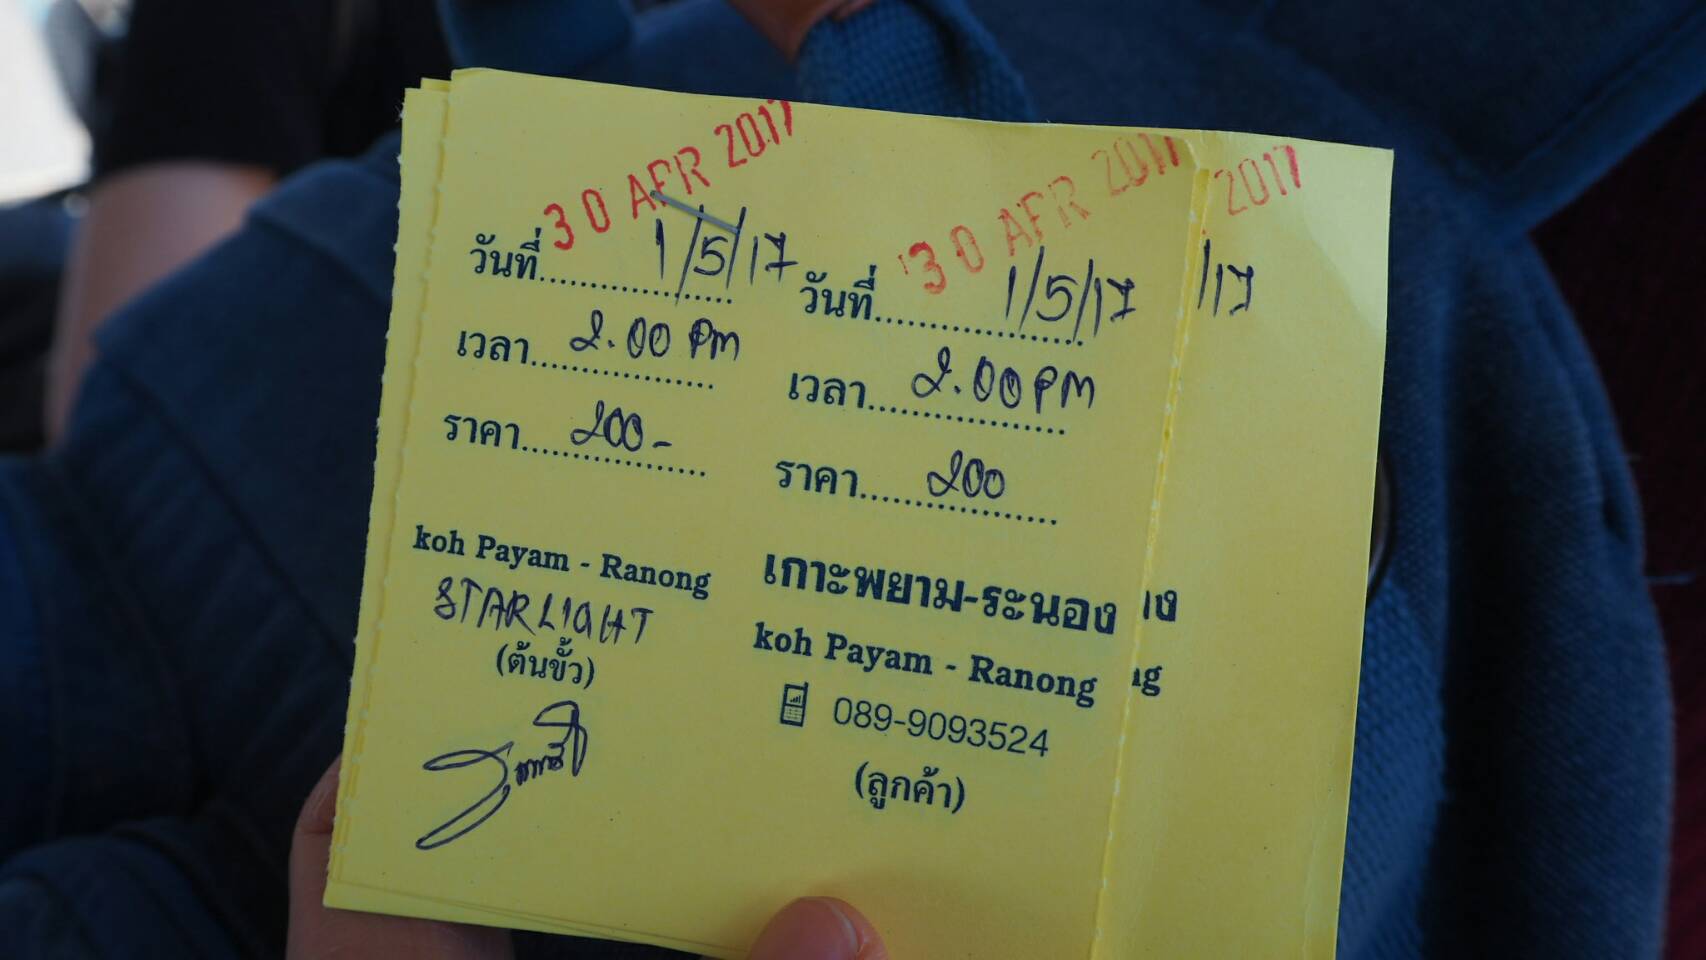 30 APR 2017
วันที่ 1/5/17
เวลา 2.00 PM
ราคา 200-
koh Payam - Ranong
STARLIGHT
(ต้นขั้ว)
30 APR 2017
วันที่ 1/5/17
เวลา 2.00 PM
ราคา 200
เกาะพยาม-ระนอง
koh Payam - Ranong
089-9093524
(ลูกค้า)
2017
/17
ง
ng